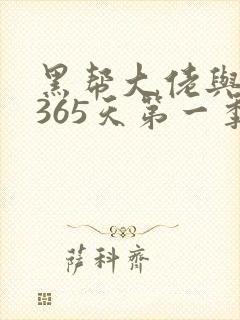 黑帮大佬與
365天第一季
萨科齊